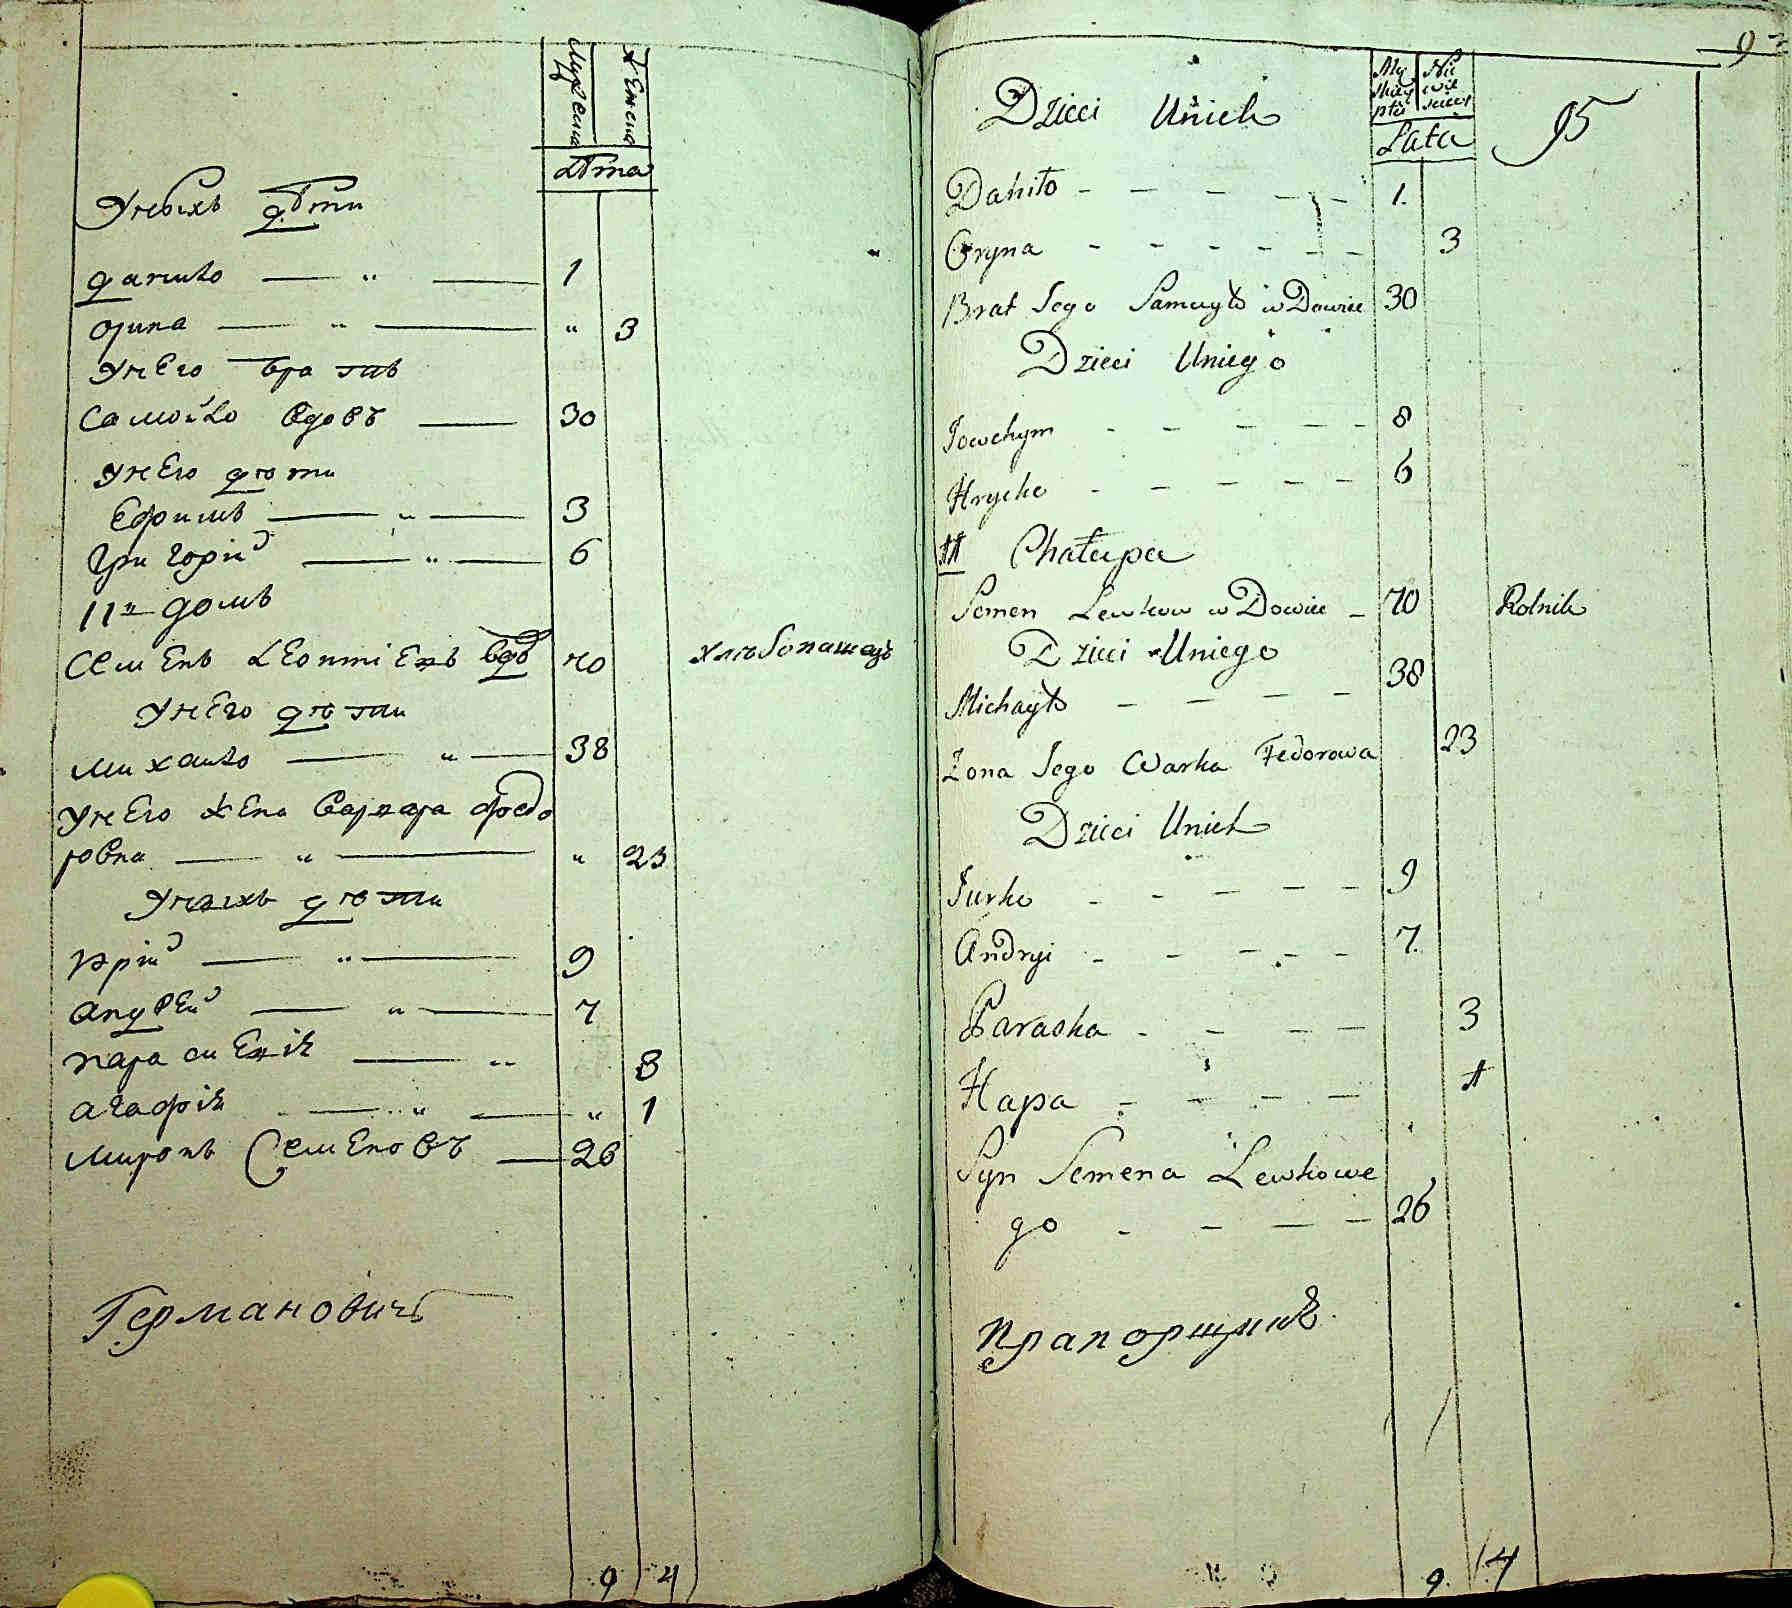 Мужеска Женска
Лѣта
У нихъ дѣти
данило — " — 1
орина — " — " 3
У него братъ
Самойло вдовъ — 30
У него дѣти
Ефимъ — " — 3
Григорій — " — 6
11й домъ
Семенъ Леонтіевъ вдовъ 70 хлѣбопашецъ
У него дѣти
михайло — " — 38
У него жена Варвара федо
ровна — " — " 23
У нихъ дѣти
юрій — " — 9
андрей — " — 7
парасковія — " 3
агафія — " — " 1
миронъ Семеновъ — 26
Германовичъ
9 4
9
Dzieci Unich
Lata
95
Daniło - - - - - 1.
Oryna - - - - - - 3
Brat Jego Samuyło w Dowiec 30
Dzieci Uniego
Jowchym - - - - - 8
Hrycko - - - - - 6
11 Chałupa
Semen Lewkow w Dowiec - 70 Rolnik
Dzieci Uniego
Michayło - - - - 38
Zona Jego Warka Fedorowa 23
Dzieci Unich
Jurko - - - - - 9
Andryi - - - - - 7.
Paraska - - - - 3
Hapa - - - - 1
Syn Semena Lewkowe
go - - - - 26
Прапорщикъ
9. 4